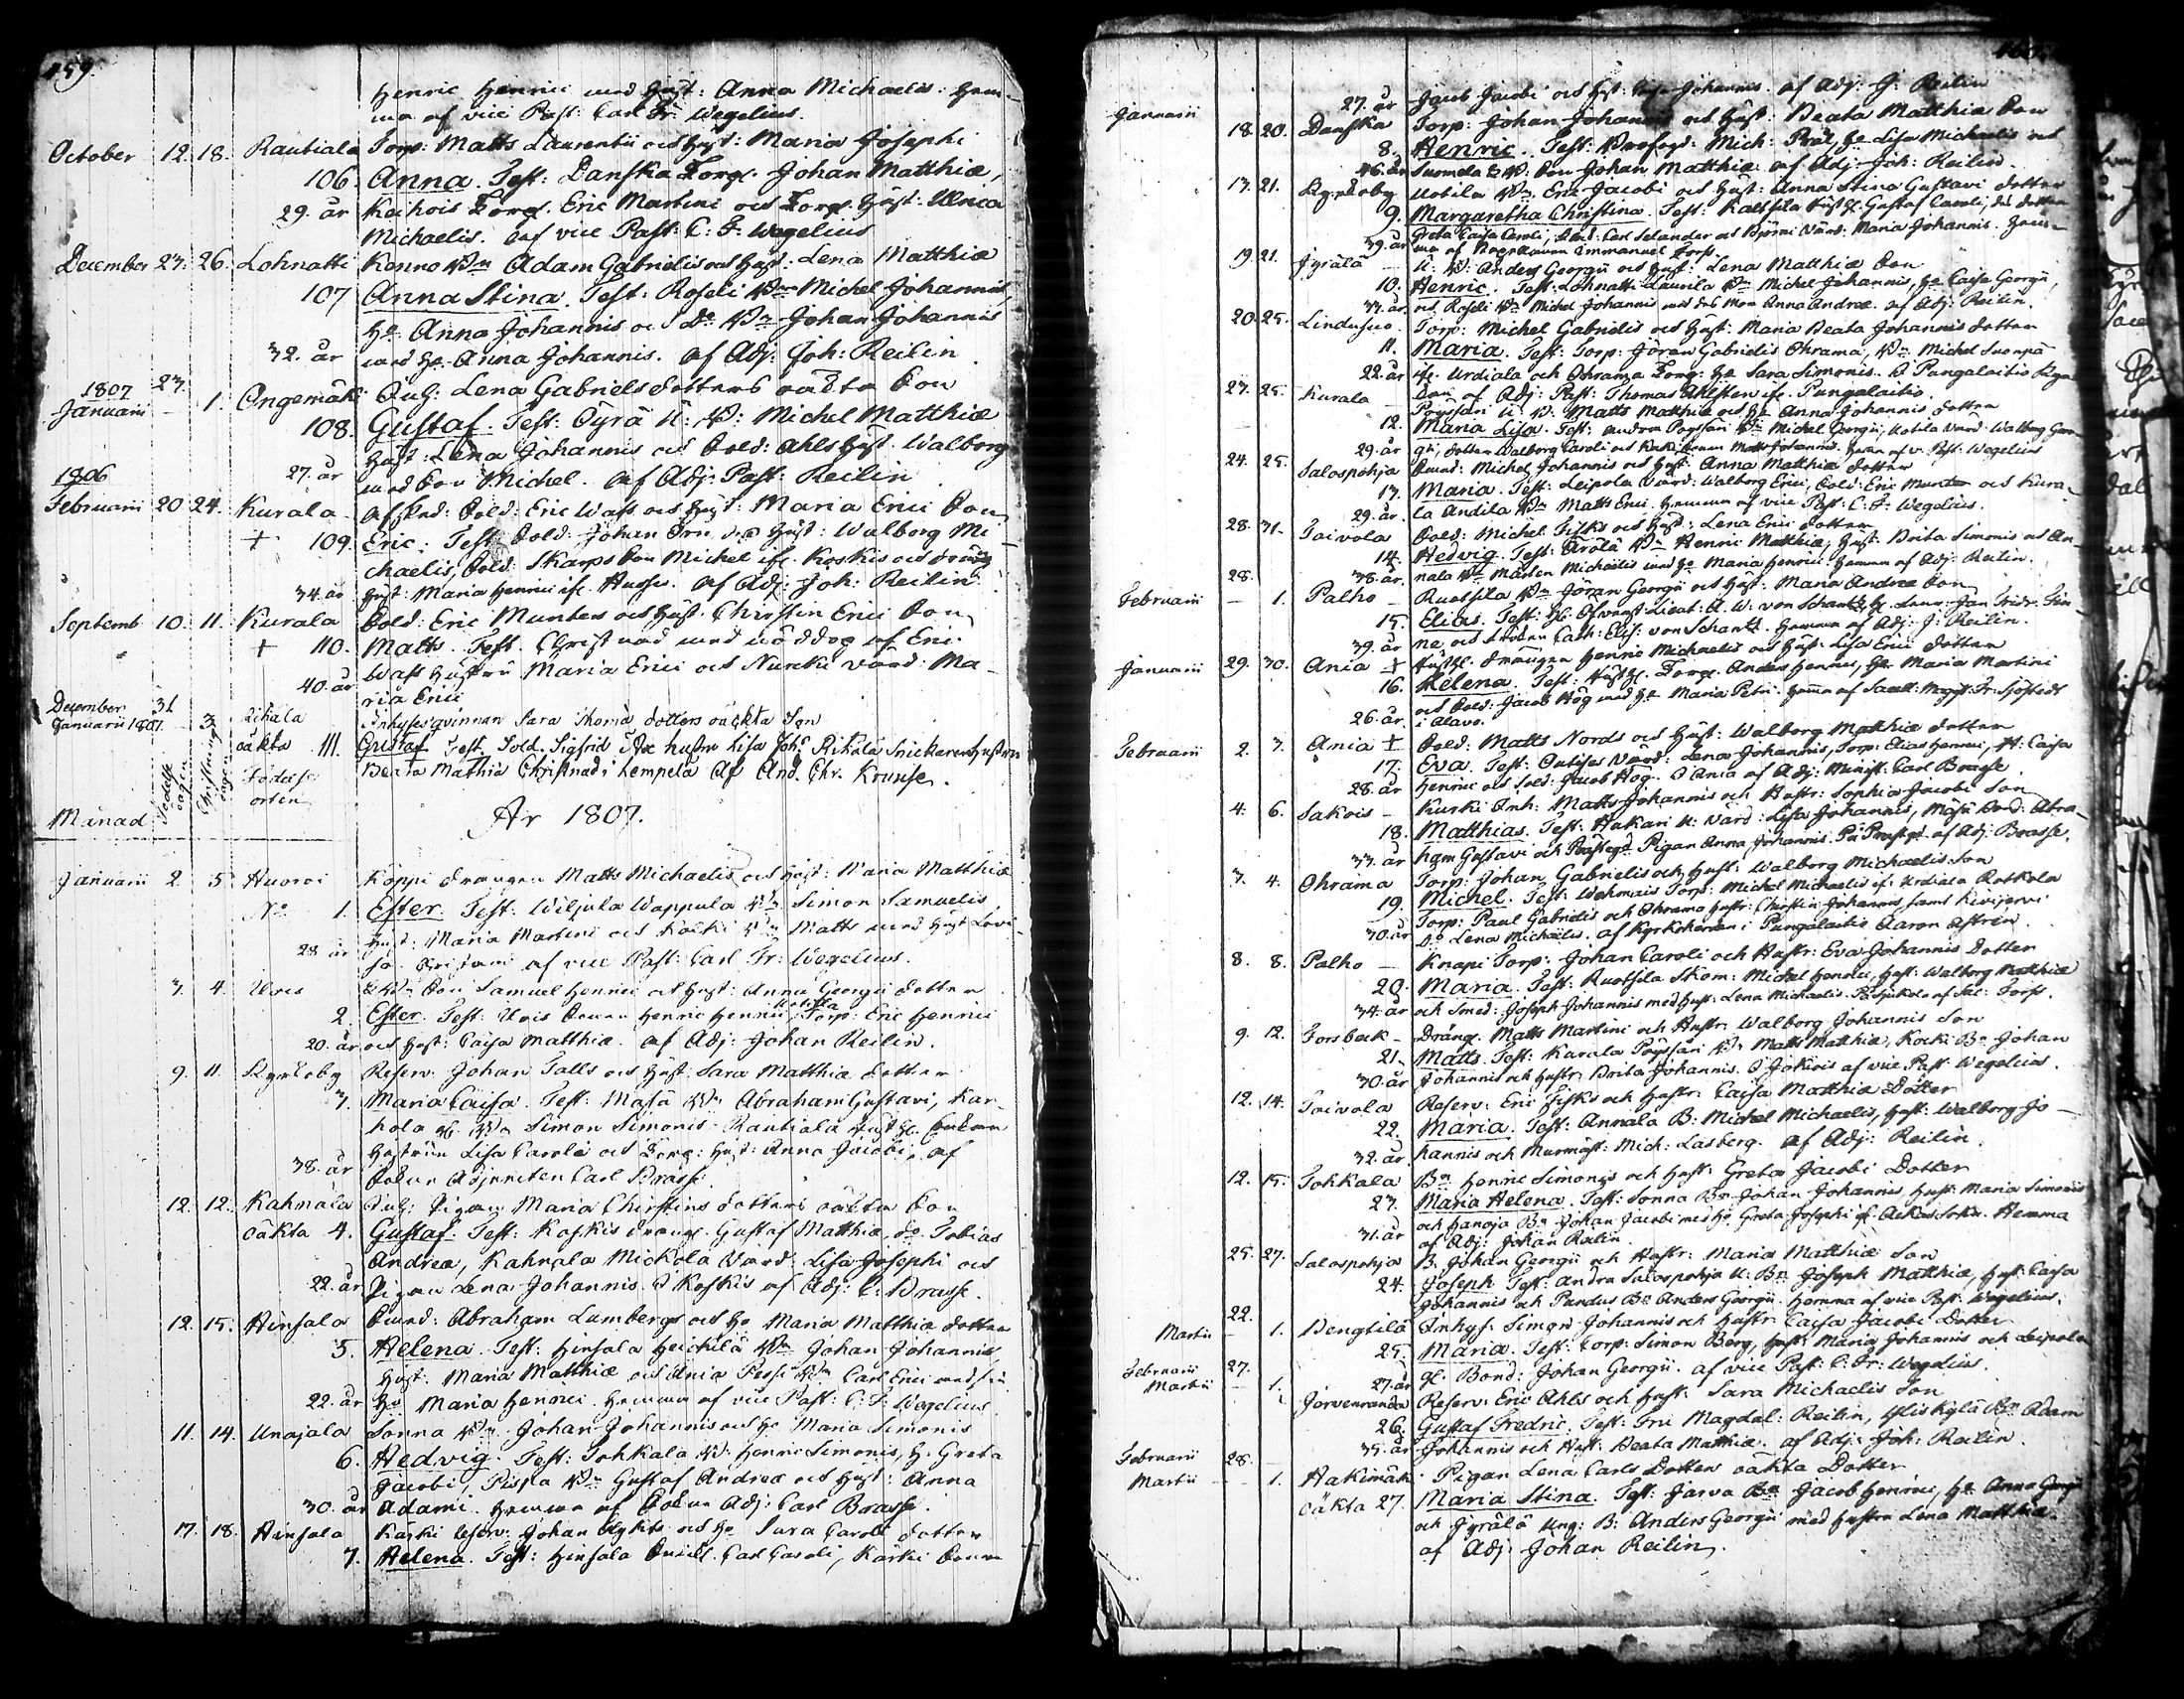 459.
Henric Henrici med Hust: Anna Michaelis. Hem-
ma af vice Past: Carl Fr: Wegelius.
October 12. 18. Rautiala Torp: Matts Laurentii och Hust: Maria Josephi
106. Anna. Test: Danska Torp. Johan Matthiæ,
29. år Torp. Eric Martini och Torp. Hust: Ulrica
Michaelis. af vice Past: C: F: Wegelius
December 23. 26. Lohnatti Konno Bn Adam Gabrielis och Hust: Lena Matthiæ
107 Anna Stina. Test: Roseli Bn Michel Johannis,
Ho Anna Johannis och Do Bn Johan Johannis
32. år med Ho Anna Johannis. af Adj: Joh: Reilin
1807 27.
Januarii – 1. Ongemäki Inh: Lena Gabriels dotters oäkta Son
108. Gustaf. Test: Öyrä U: B: Michel Matthiæ
Hust: Lena Johannis och Sold: Ahls Hust. Walborg
27. år med Son Michel. af Adj: Past: Reilin.
1806
Februarii 20 24. Kurala Afsked: Sold: Eric Wass och Hust: Maria Erici Son
+ 109. Eric. Test: Sold: Johan Örn med Hust: Walborg Mi-
chaelis, Sold: Skarps Son Michel ifr. Koskis och dräng
34. år Hust: Maria Henrici ifr. af Adj: Joh: Reilin.
Septemb 10. 11. Kurala Sold: Eric Munters och Hust. Christin Erici Son
+ 110. Matts. Test. Christnad med nöddop af Eric
Wass Hustru Maria Erici och Nurcki Värd: Ma-
40. år ria Erici
December 31
Januarii 1807 – 3. Rihala Inhyses qvinnan Sara Thomæ dotters oäckta Son
oäkta 111. Gustaf Test. Sold. Sigfrid hustru Lisa Joh: Rihala Snickaren hustru
Beata Mathiæ Christnad i Lempelä Af And. Chr. Krunse.
Månad Födelse dagen Christnings dagen Födelse orten
År 1807.
Januarii 2. 5. Huovoi Koppi drängen Matts Michaelis och Hust: Maria Matthiæ
No 1. Ester. Test: Wiljala Wappula Bn Simon Samuelis,
Hust: Maria Martini och Kacki Bn Matts med Hust Lovi-
28 år sa af vice Past: Carl Fr: Wegelius.
3. 4. Urois Bn Son Samuel Henrici och Hust: Anna Georgii dotter
2. Ester. Test: Urois Sonen Henric Henrici, Uotila Torp: Eric Henrici
20. år och Hust: Caisa Matthiæ. af Adj: Johan Reilin.
9. 11. Kyrkoby Reserv. Johan Talls och Hust. Sara Matthiæ dotter
3. Maria Caisa. Test: Masä Bn Abraham Gustavi, Kar-
hola Bn Simon Simonis. Rautiala
hustrun Lisa Caroli och Torp: Hust: Anna Jacobi, af
38. år Adjuncten Carl Brasse
12. 12. Kahnala Inh: Pigan Maria Christins dotters oäkta Son
oäkta 4. Gustaf. Test: Koskis dräng. Gustaf Matthiæ, do Tobias
Andreæ, Kahnala Mickola Värd: Lisa Josephi och
22. år Pigan Lena Johannis. I Koskis af Adj: C: Brasse.
12. 15. Hinsala Abraham Lumbergs och Ho Maria Matthiæ dotter
5. Helena. Test: Hinsala Heickilä Bn Johan Johannis,
Hust: Maria Matthiæ och Ania Pesse Bn Carl Erici med sin
22. år Ho Maria Henrici. Hemma af vice Past: C: F: Wegelius
11. 14. Unajala Sonna Bn Johan Johannis och Ho Maria Simonis
6. Hedvig. Test: Tohkala B: Henric Simonis, H: Greta
Jacobi, Pispa Bn Gustaf Andreæ och Hust: Anna
30. år Adami. Hemma af Adj: Carl Brasse.
17. 18. Hinsala Karki Reserv: Johan och Ho Sara Caroli dotter
7. Helena. Test: Hinsala Carl Caroli, Karki Sonen
27. år Jacob Jacobi och Hust: Johannis. af Adj: J: Reilin
Januarii 18. 20. Danska Torp: Johan Johannis och Hust: Beata Matthiæ Son
8. Henric. Test: Mich: Lisa Michaelis och
46. år Suomela B. Son Johan Matthiæ. af Adj: Joh: Reilin.
17. 21. Kyrkoby Uotila Bn Eric Jacobi och Hust: Anna Stina Gustavi dotter
9. Margaretha Christina. Test: Gustaf Caroli, dotter
39. år Greta Caisa Caroli, Carl Selander och Björni Värd: Maria Johannis. Hem-
ma af Emmanuel
19. 21. Jyrälä – U: B: Anders Georgii och Hust: Lena Matthiæ Son
10. Henric. Test: Lohnatti Laurila Bn Michel Johannis, Ho Caisa Georgii,
33. år och Roseli Bn Michel Johannis med des Mor Anna Andreæ. af Adj: Reilin.
20. 25. Lindusuo. Torp: Michel Gabrielis och Hust: Maria Beata Johannis dotter
11. Maria. Test: Torp: Jöran Gabrielis Ohrama, Bn Michel
22. år ifr. Urdiala och Ohrama Torp: Ho Sara Simonis. I Pungalaitio Kyr-
kan af Adj: Past: Thomas Ahlsten ifr. Pungalaitio.
23. 25. Kurala – Poyssäri U: B: Matts Matthiæ och Ho Anna Johannis dotter
12. Maria Lisa. Test: Andra Poyssäri Bn Michel Georgii, Uotila Värd: Walborg Geor-
29. år gii, dotter Walborg Caroli och Matts Johannis. Hema af v. Past: Wegelius
24. 25. Salospohja Michel Johannis och Hust: Anna Matthiæ dotter
13. Maria. Test: Leipola Värd: Walborg Erici, Sold: Eric Munter och Kura-
29. år. la Andila Bn Matts Erici. Hemma af vice Past: C: F: Wegelius.
28. 31. Toivola Sold: Michel Fisks och Hust: Lena Erici dotter
14. Hedvig. Test: Arolä Bn Henric Matthiæ, Hust: Brita Simonis och An-
38. år. nala Bn Mårten Michaelis med Ho Maria Henrici Hemma af Adj: Reilin.
28.
Februarii – 1. Palho – Ruotsila Bn Jöran Georgii och Hust: Maria Andreæ Son
15. Elias. Test: Lieut: A. W. von Schantz, Jan Fridr. Fin-
39. år ne och Cath: Elis: von Schantz. Hemma af Adj: J: Reilin.
Januarii 29. 30. Ania + drängen Henric Michaelis och Hust: Lisa Erici dotter
16. Helena. Test: Torp. Anders Henrici, Ho Maria Martini
26. år och Sold: Jacob Hög med Ho Maria Petri. Hema af Sjöstedt
i Alavo.
Februarii 2. 3. Ania + Sold: Matts Nords och Hust: Walborg Matthiæ dotter
17. Eva. Test: Outises Värd: Lena Johannis, Torp: Elias Henrici, H: Caisa
28. år Henrici och Sold: Jacob Hög. I Ania af Adj: Minist: Carl Brasse.
4. 6. Sakois – Kurki Inh: Matts Johannis och Hustr: Sophia Jacobi Son
18. Matthias. Test: Hakari U: Värd: Lisa Johannis, Mäsä Bond: Abra-
33. år ham Gustavi och Prästegd Pigan Anna Johannis. På Prestgd af Adj: Brasse.
3. 4. Ohrama Torp: Johan Gabrielis och Hust: Walborg Michaelis Son
19. Michel. Test: Wehmais Torp: Michel Michaelis if: Urdiala Ratkola
Torp: Paul Gabrielis och Ohrama Hustr: Christin Johannis, samt Kivijervi
30. år Do Lena Michaelis. af Kyrkoherren i Pungalaitio Aaron Astrén.
8. 8. Palho – Knapi Torp: Johan Caroli och Hustr: Eva Johannis Dotter
20. Maria. Test: Ruotsila Skom: Michel Henrici, Hust: Walborg Matthiæ
34. år och Smed: Joseph Johannis med Hust: Lena Michaelis. af Sac:
9. 12. Forsback – Dräng. Matts Martini och Hustr: Walborg Johannis Son
21. Matts. Test: Kurala Poyssäri Bn Matts Matthiæ, Kocki Bn Johan
30. år Johannis och Hustr. Brita Johannis. I Jokiois af vice Past: Wegelius.
12. 14. Toivola Reserv: Eric Fisks och Hustr: Caisa Matthiæ Dotter
22. Maria. Test: Annala B: Michel Michaelis, Hust: Walborg Jo-
32. år hannis och Murmäst: Mich: Lasberg. af Adj: Reilin.
12. 15. Tohkala Bn Henric Simonis och Hust: Greta Jacobi Dotter
23. Maria Helena. Test: Sonna Bn Johan Johannis, Hust: Maria Simonis
och Hanoja Bn Johan Jacobi med Ho Greta Josephi Hemma
31. år af Adj: Johan Reilin.
25. 27. Salospohja B. Johan Georgii och Hustr: Maria Matthiæ Son
24. Joseph Test: Andra Salospohja U: Bn Joseph Matthiæ, Hust: Caisa
Johannis och Pundus Bn Anders Georgii. Hemma af vice Past: Wegelius.
22.
Martii – 1. Bengtilä Inhys: Simon Johannis och Hustr: Caisa Jacobi Dotter
25. Maria. Test: Torp: Simon Berg, Hust: Maria Johannis och Leipola
Februarii 27. 27. år gl: Bond: Johan Georgii. af vice Past: C: Fr: Wegelius.
Martii – 1. Jorvenranda Reserv: Eric Ahls och Hust: Sara Michaelis Son
26. Gustaf Fredric. Test: Fru Magdal: Reilin, Yliskylä Bn Adam
35. år Johannis och Hust: Beata Matthiæ. af Adj: Joh: Reilin.
Februarii 28.
Martii – 1. Hakimäki Pigan Lena Carls Dotters oäkta Dotter
oäkta 27. Maria Stina. Test: Jarva Bn Jacob Henrici, Ho Anna Georgii
och Jyrälä Ung: B: Anders Georgii med Hustru Lena Matthiæ.
af Adj: Johan Reilin.